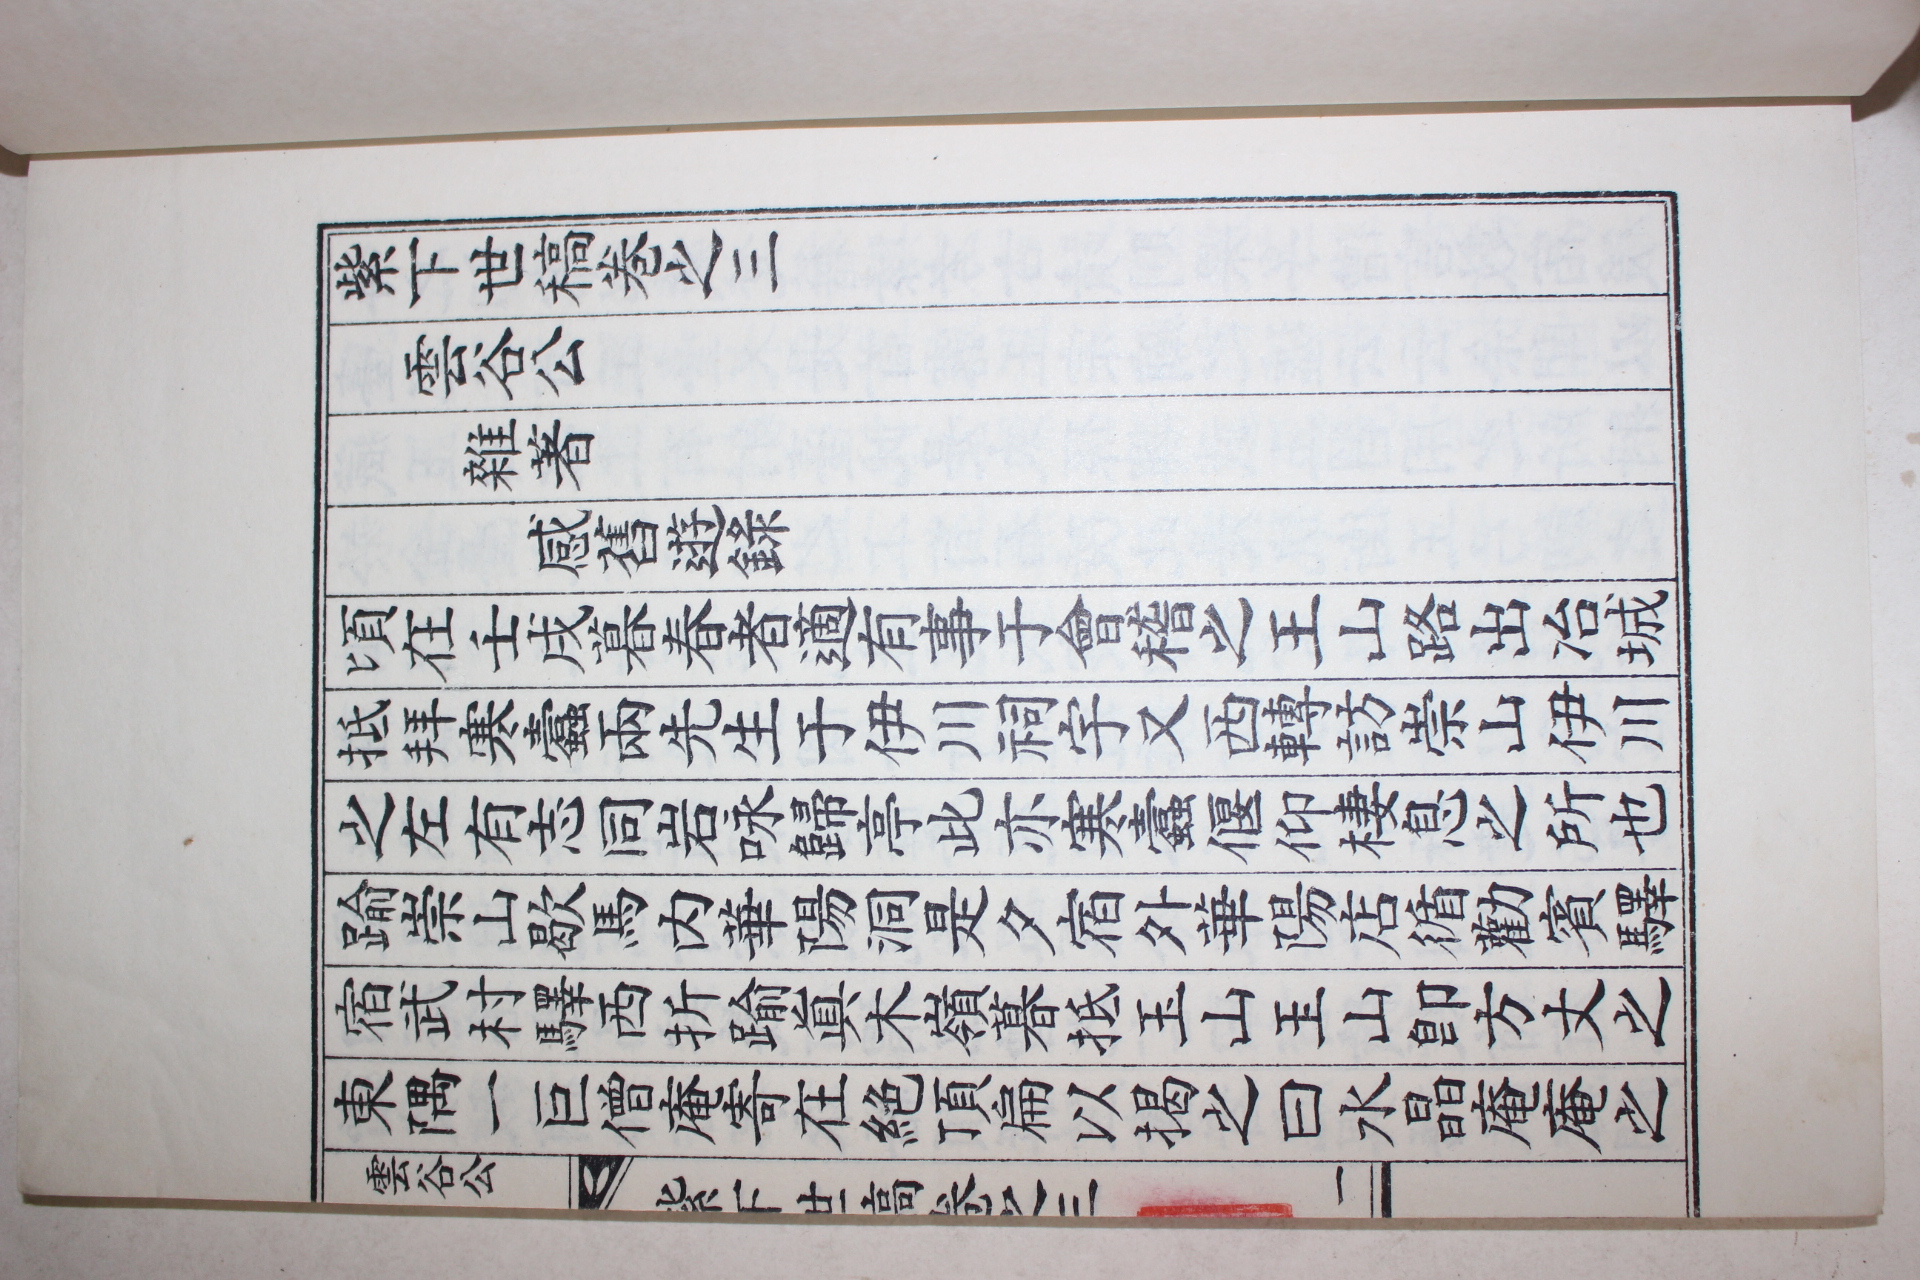 紫下世稿卷之三
雲谷公
雜著
感舊遊錄
頃在壬戌暮春者適有事于會稽之玉山路出冶城
抵拜寒蠹兩先生于伊川祠宇又西轉訪崇山伊川
之左有志同岩咏歸亭此亦寒蠹偃仰棲息之所也
踰崇山歇馬內華陽洞是夕宿外華陽店循勸賓驛
宿武村驛西折踰眞木嶺暮抵玉山玉山卽方丈之
東隅一巨僧庵寄在絕頂扁以揭之曰水晶庵庵之
雲谷公
紫下世稿卷之三
一